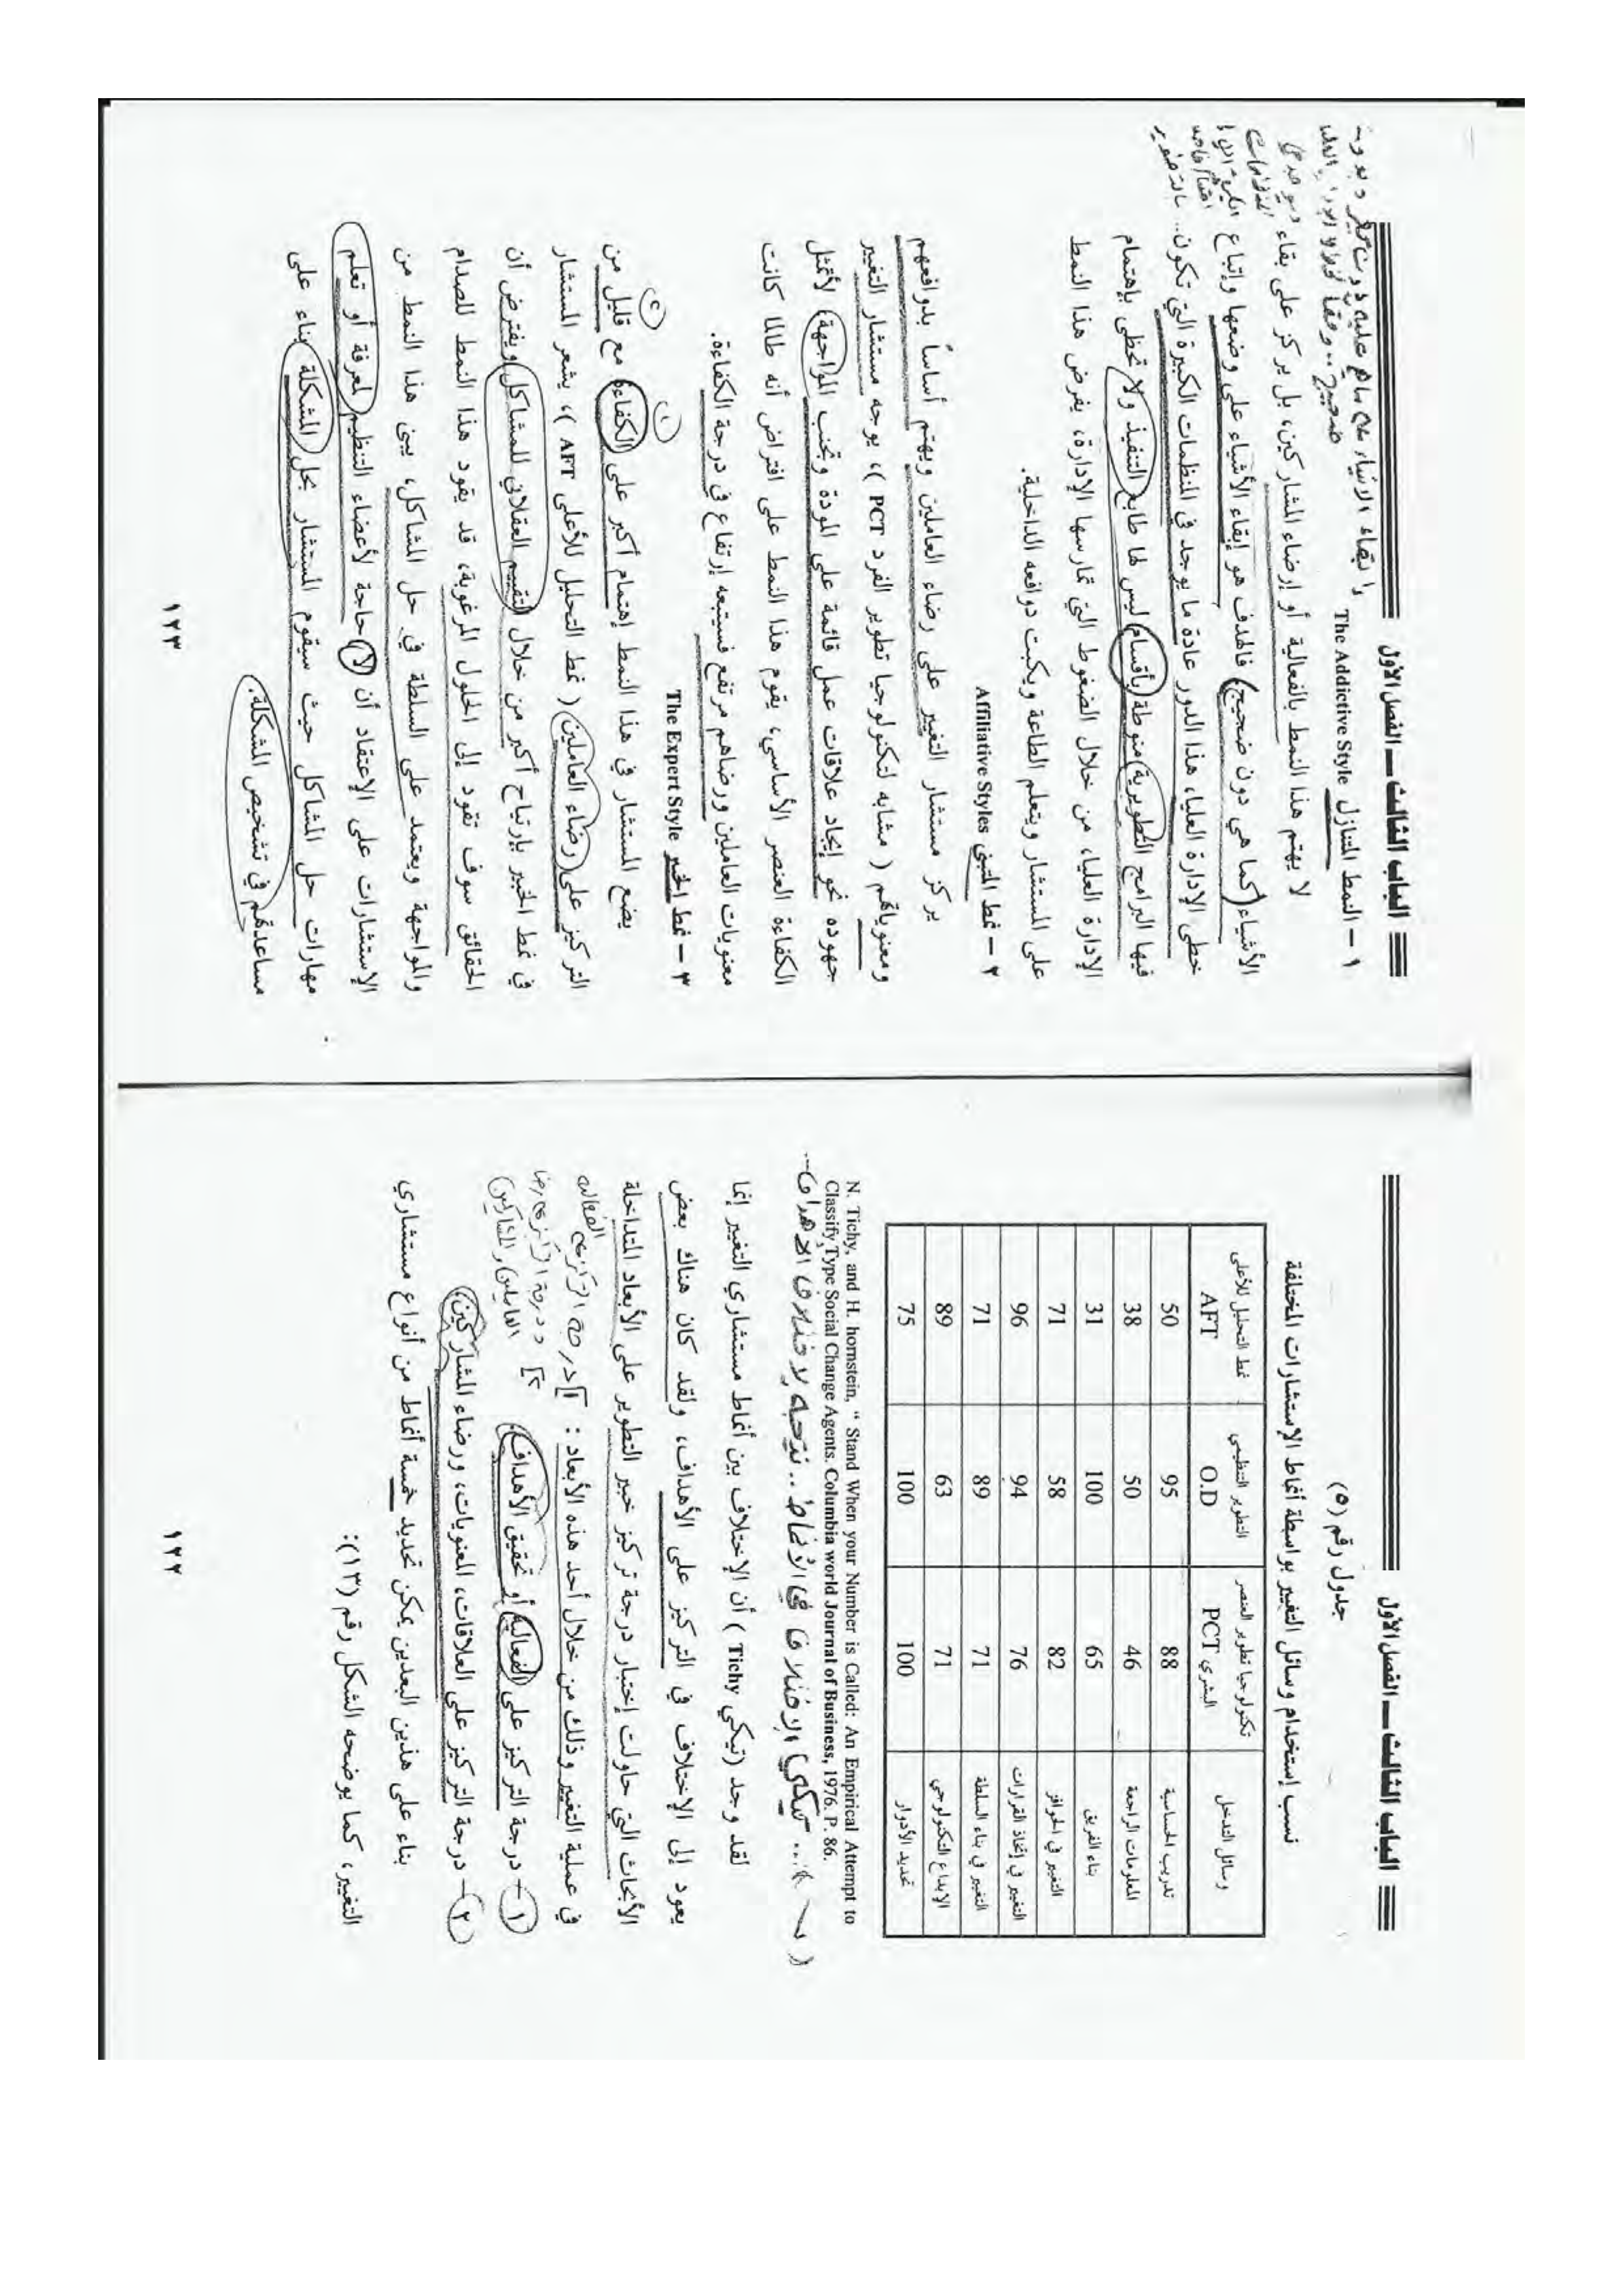 الباب الثالث ــ الفصل الأول
جدول رقم (٥)
نسب إستخدام وسائل التغيير بواسطة أنماط الإستشارات المختلفة
وسائل التدخل تكنولوجيا تطوير العنصر البشري PCT التطوير التنظيمي O.D نمط التحليل للأعلى AFT
تدريب الحساسية 88 95 50
المعلومات الراجعة 46 50 38
بناء الفريق 65 100 31
التغيير في الحوافز 82 58 71
التغيير في إتخاذ القرارات 76 94 96
التغيير في بناء السلطة 71 89 71
الإبداع التكنولوجي 71 63 89
تحديد الأدوار 100 100 75
N. Tichy, and H. hornstein, “ Stand When your Number is Called: An Empirical Attempt to
Classify Type Social Change Agents. Columbia world Journal of Business, 1976. P. 86.
تيكي الاختلاف في الأنماط.. نتيجة لاختلاف الأهداف...
لقد وجد (تيكي Tichy ) أن الإختلاف بين أنماط مستشاري التغيير إنما
يعود إلى الإختلاف في التركيز على الأهداف، ولقد كان هناك بعض
الأبحاث التي حاولت إختبار درجة تركيز خبير التطوير على الأبعاد المتداخلة
في عملية التغيير وذلك من خلال أحد هذه الأبعاد : ١] درجة التركيز على الفعالية
٢] درجة التركيز على رضا العاملين والمشاركين
١ – درجة التركيز على الفعالية أو تحقيق الأهداف.
٢ – درجة التركيز على العلاقات، المعنويات، ورضاء المشاركين.
بناء على هذين البعدين يمكن تحديد خمسة أنماط من أنواع مستشاري
التغيير، كما يوضحه الشكل رقم (١٣):
١٢٢
الباب الثالث ــ الفصل الأول
إبقاء الأشياء على ماهي عليه دون تغيير
١ – النمط المتنازل The Addictive Style
لا يهتم هذا النمط بالفعالية أو إرضاء المشاركين، بل يركز على بقاء
الأشياء (كما هي دون ضجيج) فالهدف هو إبقاء الأشياء على وضعها وإتباع
خطى الإدارة العليا، هذا الدور عادة ما يوجد في المنظمات الكبيرة التي تكون
فيها البرامج التطويرية منوطة بأقسام ليس لها طابع التنفيذ ولا تحظى بإهتمام
الإدارة العليا، من خلال الضغوط التي تمارسها الإدارة، يفرض هذا النمط
على المستشار ويتعلم الطاعة ويكبت دوافعه الداخلية.
٢ – نمط المتبني Affiliative Styles
يركز مستشار التغيير على رضاء العاملين ويهتم أساساً بدوافعهم
ومعنوياتهم ( مشابه لتكنولوجيا تطوير الفرد PCT )، يوجه مستشار التغيير
جهوده نحو إيجاد علاقات عمل قائمة على المودة وتجنب المواجهة، لأتمثل
الكفاءة العنصر الأساسي، يقوم هذا النمط على افتراض أنه طالما كانت
معنويات العاملين ورضاهم مرتفع فسيتبعه إرتفاع في درجة الكفاءة.
٣ – نمط الخبير The Expert Style
يضع المستشار في هذا النمط إهتمام أكبر على الكفاءة مع قليل من
التركيز على رضاء العاملين ( نمط التحليل للأعلى AFT )، يشعر المستشار
في نمط الخبير بإرتياح أكبر من خلال التقييم العقلاني للمشاكل ويفترض أن
الحقائق سوف تقود إلى الحلول المرغوبة، قد يقود هذا النمط للصدام
والمواجهة ويعتمد على السلطة في حل المشاكل، يبنى هذا النمط من
الإستشارات على الإعتقاد أن لا حاجة لأعضاء التنظيم لمعرفة أو تعلم
مهارات حل المشاكل حيث سيقوم المستشار بحل المشكلة بناء على
مساعدتهم في تشخيص المشكلة.
١٢٣